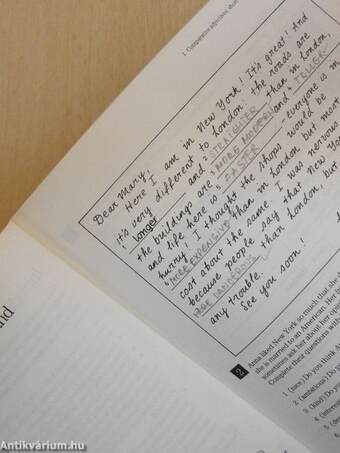 1 Comparative adjectives: short
Dear Mary,
Here I am in New York! It's great! And
it's very different to London: the roads are
longer and STRAIGHTER than in London,
the buildings are MORE MODERN and TELLER
and life here is FASTER - everyone is in
hurry! I thought the shops would be
MORE EXPENSIVE than in London but most
cost about the same. I was nervous
because people say that New York
MORE DANGEROUS than London, but
any trouble.
See you soon!
2 Anna liked New York so much that she
she is married to an American. Her
sometimes ask her about her opin
Complete their questions with
1 (nice) Do you think A
2 (ambitious) Do yo
3 (kind) Do you
4 (intere
5 (de
and
Antikvárium.hu
Antikvárium.hu